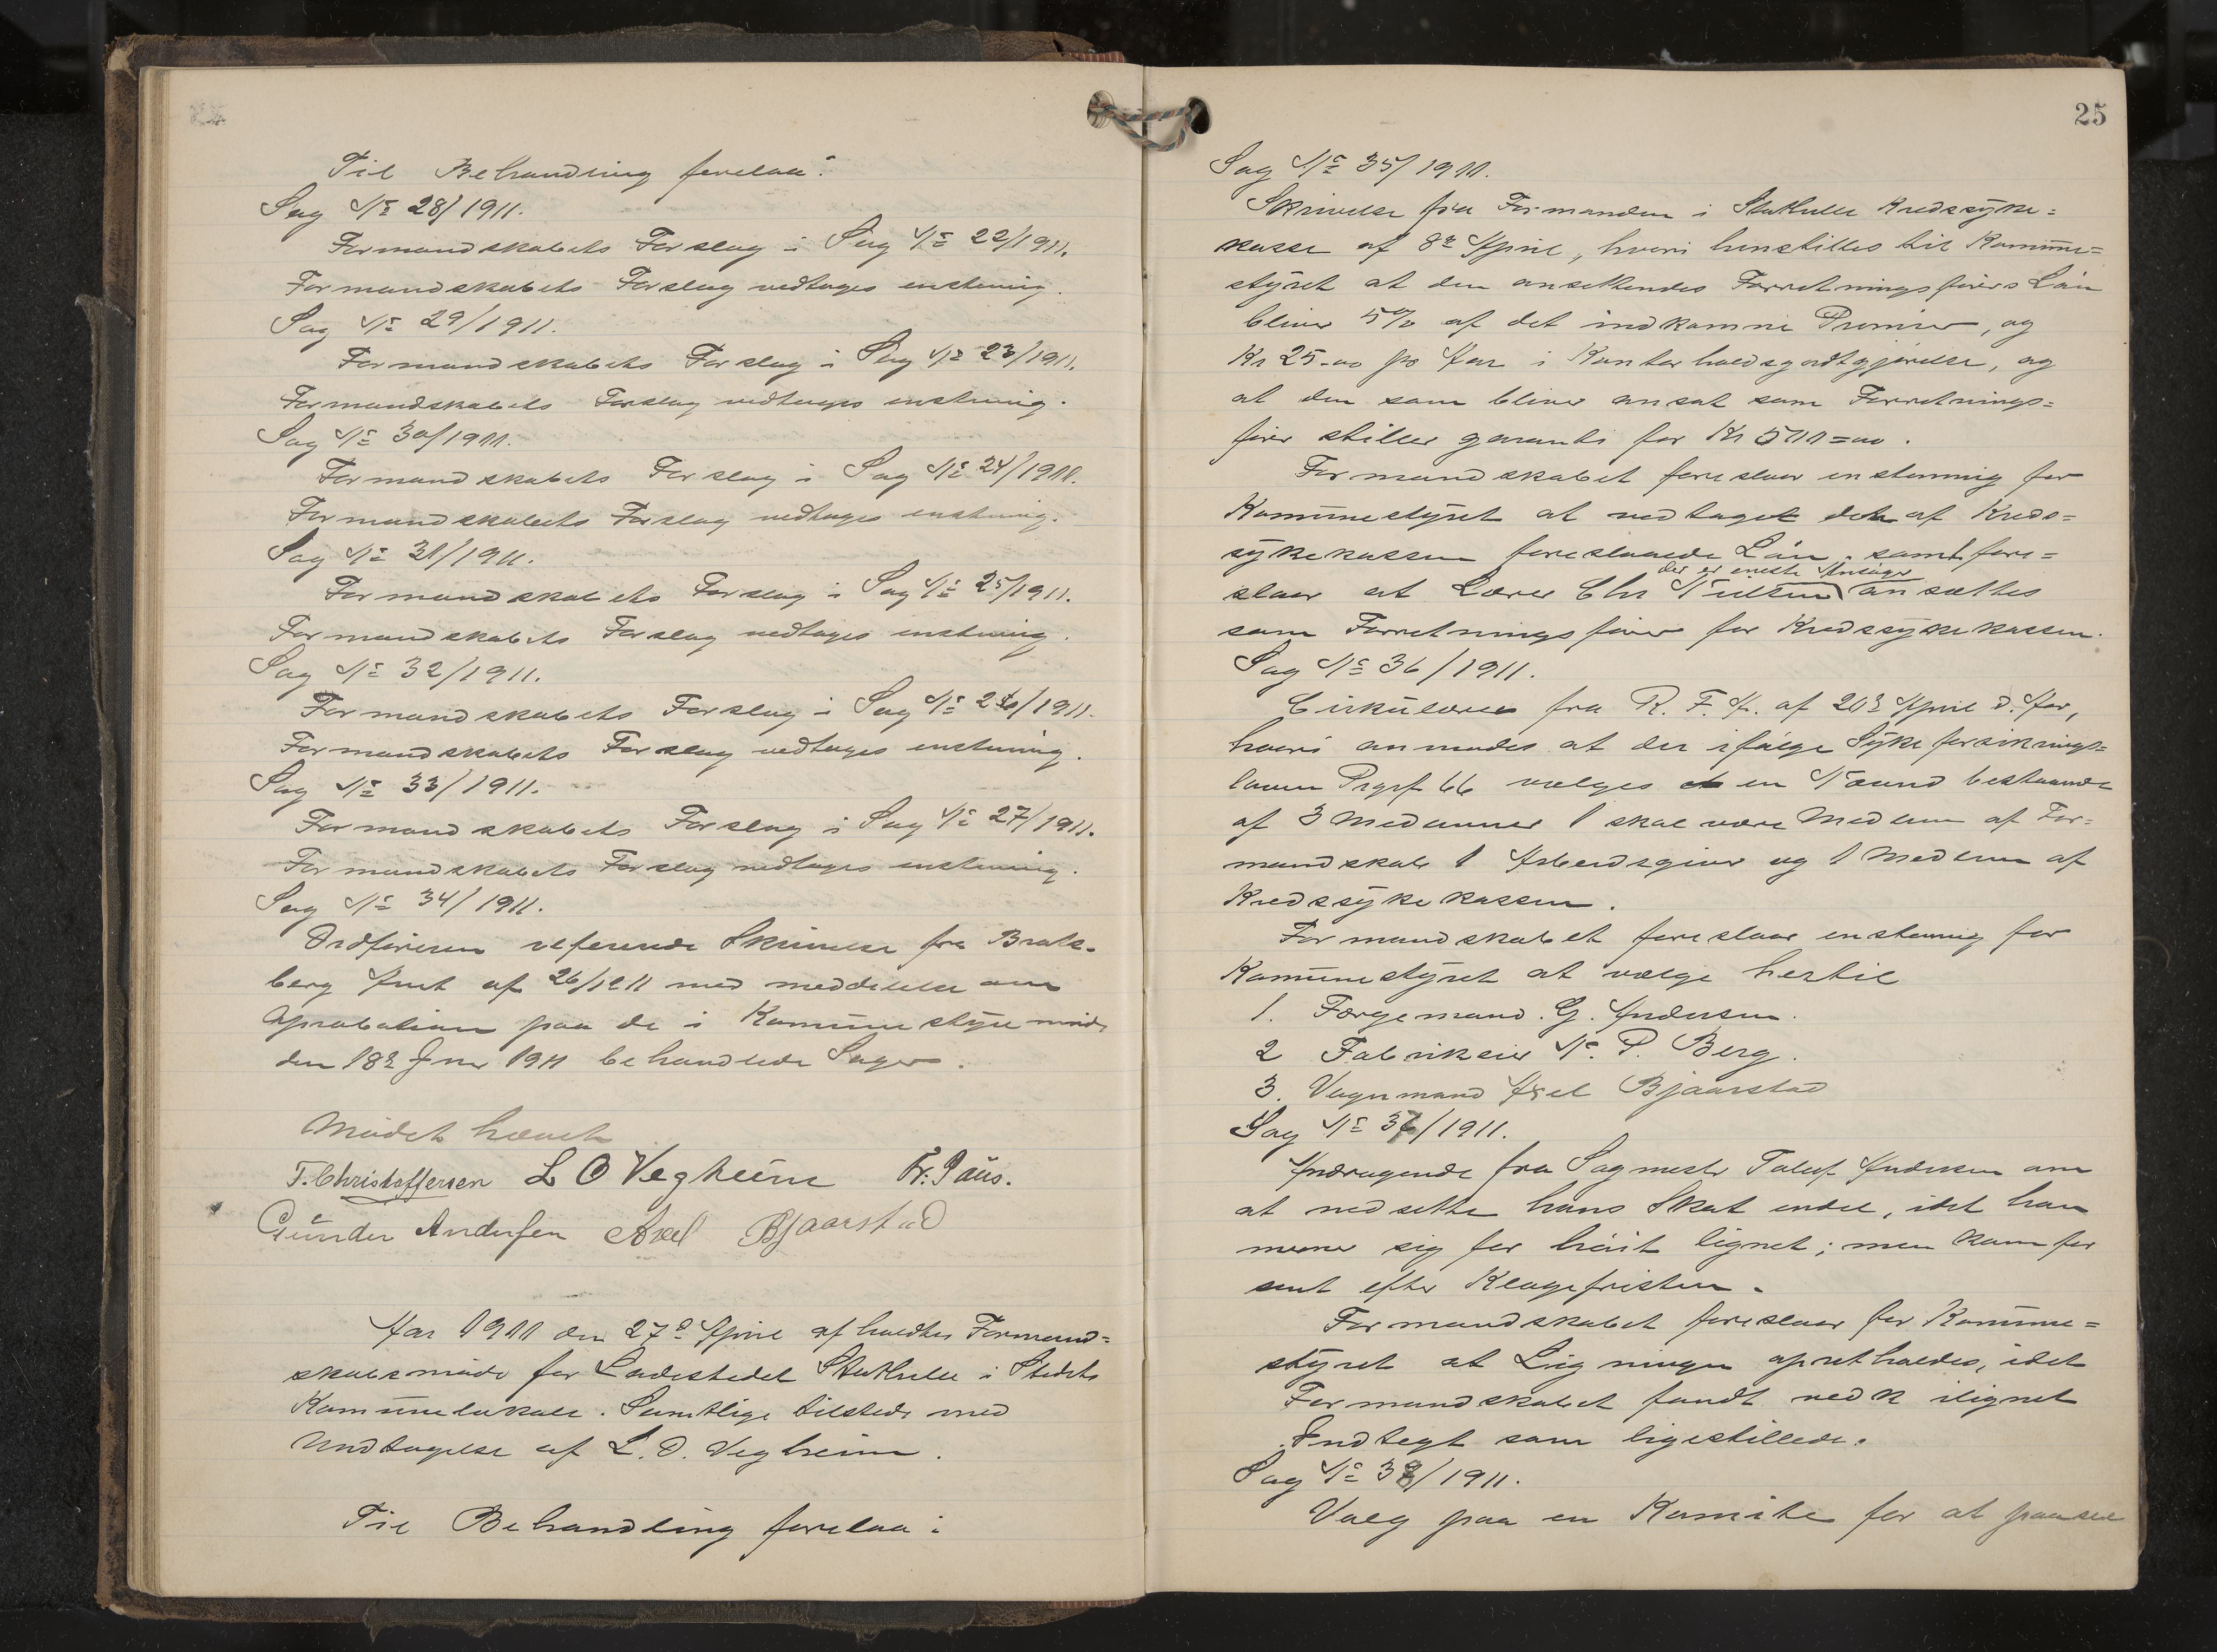 Til Behandling forelaa:
Sag No 28/1911.
Formandskabets Forslag i Sag No 22/1911.
Formandskabets Forslag vedtages enstemig.
Sag No 29/1911.
Formandskabets Forslag i Sag No 23/1911.
Formandskabets Forslag vedtages enstemig.
Sag No 30/1911.
Formandskabets Forslag i Sag No 24/1911.
Formandskabets Forslag vedtages enstemig.
Sag No 31/1911.
Formandskabets Forslag i Sag No 25/1911.
Formandskabets Forslag vedtages enstemig.
Sag No 32/1911.
Formandskabets Forslag i Sag No 26/1911.
Formandskabets Forslag vedtages enstemig.
Sag No 33/1911.
Formandskabets Forslag i Sag No 27/1911.
Formandskabets Forslag vedtages enstemig.
Sag No 34/1911.
Ordføreren refererede Skrivelse fra Brats-
berg Amt af med meddelelse om
Aprobation paa de i Kommunestyremøde
den 18de 1911 behandlede Sager.
Mødet hævet
T. Christoffersen L O Vegheim Fr. Paus.
Gunder Andersen Axel Bjaarstad
Aar 1911 den 27de April afholdtes Formand=
skabsmøde for Ladestedet Stathelle i Stedets
Komunelokale. Samtlige tilstede med
Undtagelse af L. O. Vegheim.
Til Behandling forelaa:
25
Sag No 35/1911.
Skrivelse fra Formanden i Stathelle Kredssyke=
kasse af 8de April, hvori henstilles til Komune=
styret at den ansettendes Forretningsførers Løn
bliver 5% af det indkomne Premier, og
Kr 25.00 pr Aar i Kontorholdsgodtgjørelse, og
at den som bliver ansat som Forretnings=
fører stiller garanti for Kr 500=00.
Formandskabet foreslaar enstemmig for
Komunestyret at vedtaget den af Kreds=
sykekassen foreslaaede Løn, samt fore=
der er eneste Ansøger
slaar at Lærer Chr Nielsen ansættes
som Forretningsfører for Kredssykekassen.
Sag No 36/1911.
Cirkulære fra R. F. A. af 20de April d. Aar,
hvori anmodes at der ifølge Sykeforsikrings=
loven Prgrf 66 vælges en Nævnd bestaaende
af 3 Medemmer 1 skal være Medlem af For=
mandskab 1 Arbeidsgiver og 1 Medlem af
Kredssykekassen.
Formandskabet foreslaar enstemig for
Komunestyret at vælge hertil
1. Færgemand. G. Andersen.
2 Fabrikeier N. P. Berg.
3. Vognmand Axel Bjaarstad
Sag No 37/1911.
Andragende fra Sagmester Andersen om
at nedsette hans Skat endel, idet han
mener sig for høit lignet; men kom for
sent efter Klagefristen.
Formandskabet foreslaar for Komune=
styret at Ligningen opretholdes, idet
Formandskabet fandt ilignet
Indtægt som ligestillede.
Sag No 38/1911.
Valg paa en Komite for at paase